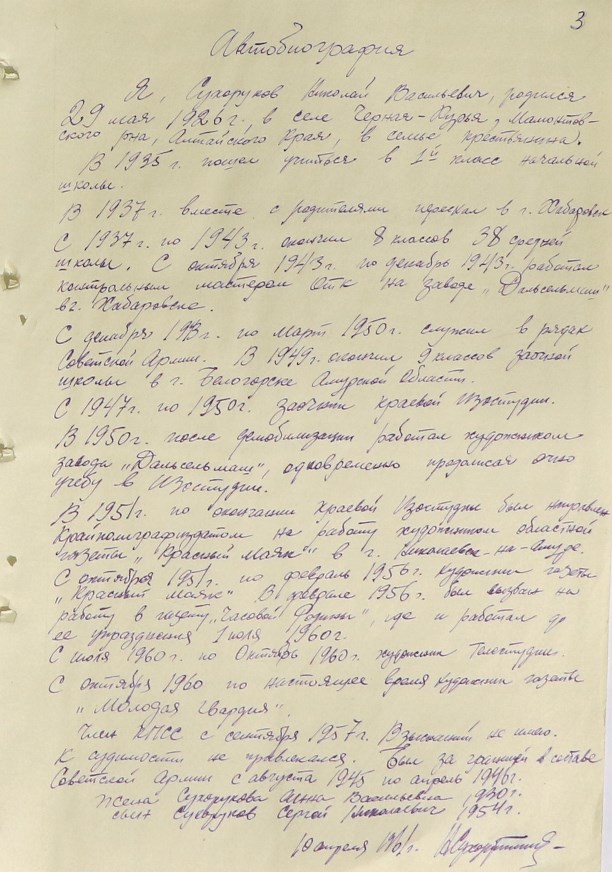 3
Автобиография
Я, Сухоруков Николай Васильевич, родился
29 мая 1926 г. в селе Черная-Курья, Мамонтов-
ского р-на, Алтайского края, в семье крестьянина.
В 1935 г. пошел учиться в 1й класс начальной
школы.
В 1937 г. вместе с родителями переехал в г. Хабаровск
С 1937 г. по 1943 г. окончил 8 классов 38 средней
школы. С октября 1943 г. по декабрь 1943 г. работал
контрольным мастером ОТК на заводе „Дальсельмаш"
в г. Хабаровске.
С декабря 1943 г. по Март 1950 г. служил в рядах
Советской Армии. В 1949 г. окончил 9 классов заочной
школы в г. Белогорске Амурской Области.
С 1947 г. по 1950 г. заочник краевой Изостудии.
В 1950 г. после демобилизации работал художником
завода „Дальсельмаш", одновременно продолжая очно
учебу в Изостудии.
В 1951 г. по окончании краевой Изостудии был направлен
Крайполиграфиздатом на работу художником областной
газеты „Красный Маяк" в г. Николаевск-на-Амуре.
С октября 1951 г. по февраль 1956 г. художник газеты
„Красный маяк". В феврале 1956 г. был вызван на
работу в газету „Часовой Родины", где и работал до
ее упразднения 1 июля 1960 г.
С июля 1960 г. по Октябрь 1960 г. художник Телестудии.
С октября 1960 по настоящее время художник газеты
„Молодая Гвардия".
Член КПСС с сентября 1957 г. Взысканий не имею.
К судимости не привлекался. Был за границей в составе
Советской Армии с августа 1945 по апрель 1946 г.
Жена Сухорукова Анна Васильевна 1930 г.
сын Сухоруков Сергей Николаевич 1954 г.
10 апреля 1961 г.